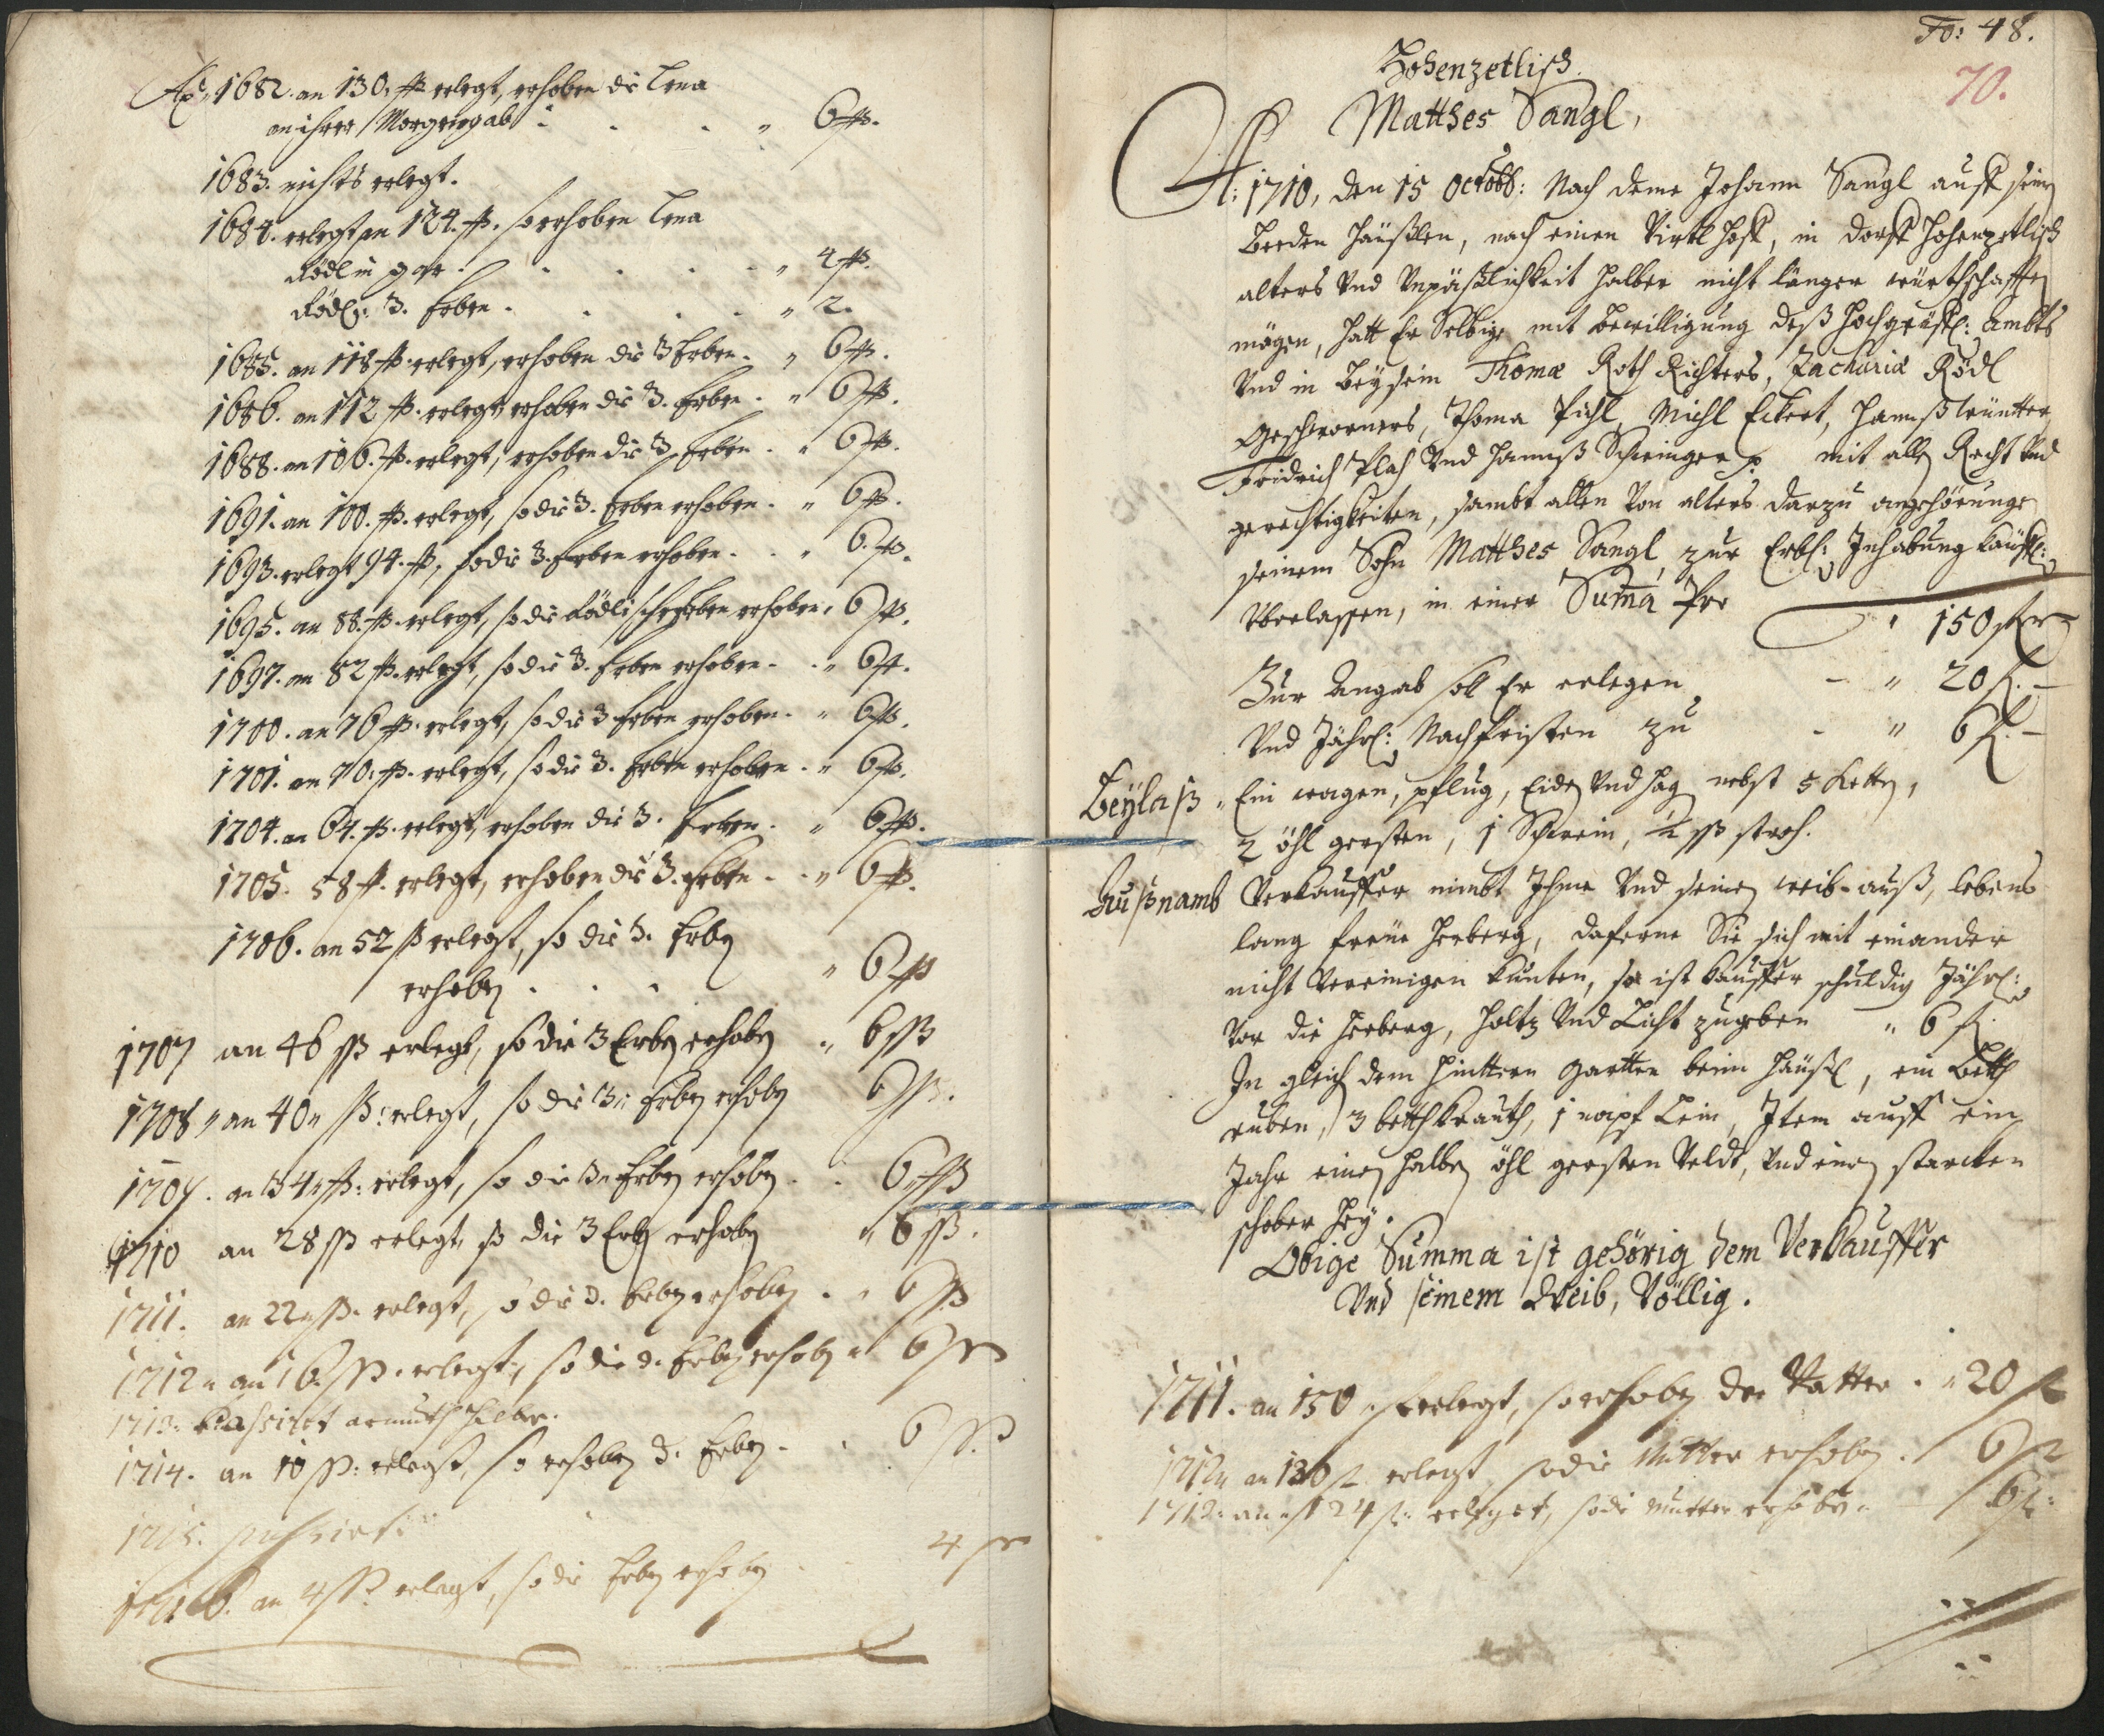 Aõ: 1682. an 130. ßß erlegt, erhoben die Lena
an ihrer Morgengab " 6 ßß.
1683. nichts erlegt.
1684. erlegt an 124. ßß. so erhoben Lena
Rödlin gar. " 4 ßß.
Rödl: 3. Erben. " 2.
1685. an 118 ßß. erlegt, erhoben die 3 Erben. " 6 ßß.
1686. an 112 ßß. erlegt, erhoben die 3. Erben. " 6 ßß.
1688. an 106. ßß. erlegt, erhoben die 3. Erben. " 6 ßß.
1691. an 100. ßß. erlegt, so die 3. Erben erhoben. " 6 ßß.
1693. erlegt 94. ßß, so die 3. Erben erhoben. " 6. ßß.
1695. an 88. ßß. erlegt, so die Rödlische Erben erhoben. 6 ßß.
1697. an 82 ßß. erlegt, so die 3. Erben erhoben. " 6 ßß.
1700. an 76 ßß. erlegt, so die 3 Erben erhoben. " 6 ßß.
1701. an 70. ßß. erlegt, so die 3. Erben erhoben. " 6 ßß.
1704. an 64. ßß. erlegt, erhoben die 3. Erben. " 6 ßß.
1705. 58 ßß. erlegt, erhoben die 3. Erben. " 6 ßß.
1706. an 52 ßß erlegt, so die 3. Erben
erhoben . . . " 6 ßß
1707 an 46 ßß erlegt, so die 3 Erben erhoben " 6 ßß
1708 " an 40 " ßß: erlegt, so die 3 " Erben erhoben 6 ßß.
1709. an 34 " ßß: erlegt, so die 3 " Erben erhoben . . 6 " ßß
1710 an 28 ßß erlegt, so die 3 Erben erhoben " 6 ßß.
1711. an 22 " ßß. erlegt, so die 3. Erben erhoben . " 6 ßß
1712 " an 16. ßß. erlegt, so die 3. Erben erhoben " 6 ßß
1713: passiret armuth halber.
1714. an 10 ßß: erlegt, so erhoben 3. Erben. 6 ßß.
1715. passiert.
1716. an 4 ßß erlegt, so die Erben erhoben 4 ßß
Fo: 48.
70.
Hohenzetlisch
Matthes Sangl,
A: 1710, den 15 Octobb: Nach deme Johann Sangl auff seine
Beeden Häußlen, nach einen Virtl Hoff, in dorff Hohenzetlisch
alters Und Unpäßlichkeit halber nicht länger würthschafften
mögen, hatt Er Selbige mit Bewilligung deß Hochgräfl: ambts
Und in Beysein Thomæ Roth Richters, Zachariæ Rödl
Geschworners, Thoma Pichl, Michl Eckert, Hannß
Fridrich Plach Und Hannß Schwinger p mit allen Recht Und
gerechtigkeiten, sambt allen Von alters darzu angehörungen
seinem Sohn Matthes Sangl, zur Erbl: Inhabung Käuffl:
Uberlassen, in einer Summa Pre
" 150 fl
Zur Angab soll Er erlegen – " 20 fl. –
Und Jährl: Nachfristen zu - " 6 fl. –
Beylaß " Ein wagen, pflug, Eiden Und Hag nebst 5 Ketten,
2 öhl gersten, 1 Schwein, ½ ßß stroh.
Außnamb Verkauffer nimbt Ihme Und seinen weib auß, lebens
lang freüe Herberg, daferne Sie sich mit einander
nicht Vereinigen Kunten, so ist Kauffer schuldig Jährl:
Vor die Herberg, Holtz Und Licht zugeben " 6 fl.
In gleich dem Hinttern Gartten beim Häußl, ein Betth
ruben, 3 betth Krauth, 1 napf Lein, Item auff ein
Jahr einen halben öhl gersten Veldt, Und einen starcken
schober Heÿ.
Obige Summa ist gehörig dem Verkauffer
Und seinem Weib, Völlig.
1711. an 150 " fl erlegt, so erhoben der Vatter . " 20 fl
1712 " an 130 fl erlegt, so die Mutter erhoben . 6 fl
1713: an 124 fl: erleget, so die Mutter erhoben. 6 fl: